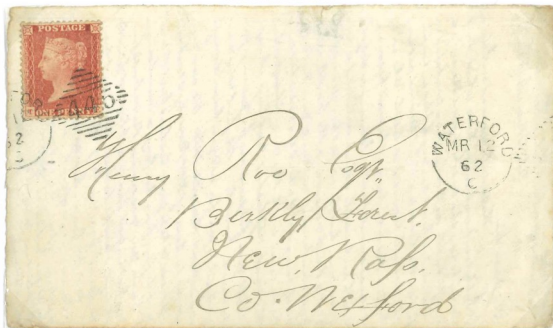 POSTAGE
ONE PENNY
446
62
WATERFORD
MR 12
62
C
Henry Roe Esqr.
Berkly Forest.
New. Ross.
Co. Wexford